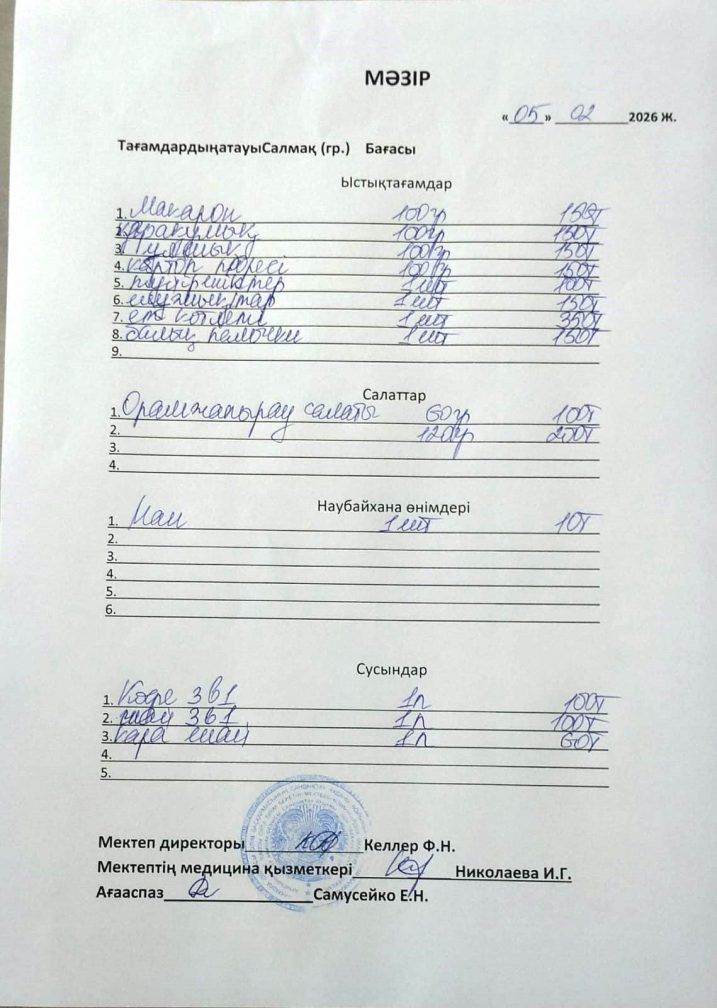 МӘЗІР
«05» 02 2026 Ж.
ТағамдардыңатауыСалмақ (гр.) Бағасы
Ыстықтағамдар
1. Макарон 100гр 150т
2. Қарақұмық 100гр 150т
3. 100гр 150т
4. картоп пюресі 100гр 150т
5. 1 шт 100т
6. 1 шт 150т
7. ет котлеті 1 шт 350т
8. балық палочки 1 шт 150т
9.
Салаттар
1. Орамжапырақ салаты 60гр 100т
2. 120гр 200т
3.
4.
Наубайхана өнімдері
1. Нан 1 шт 10т
2.
3.
4.
5.
6.
Сусындар
1. Кофе 3в1 1п 100т
2. шай 3в1 1п 100т
3. қара шай 1п 60т
4.
5.
Мектеп директоры Келлер Ф.Н.
Мектептің медицина қызметкері Николаева И.Г.
Ағааспаз Самусейко Е.Н.